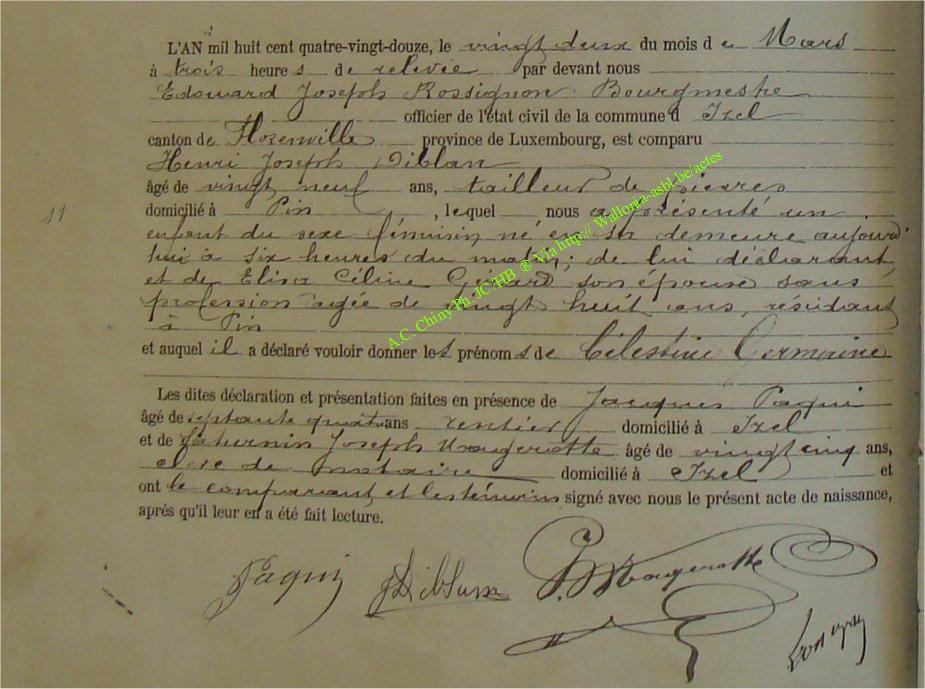 L'AN mil huit cent quatre-vingt-douze, le vingt deux du mois de Mars
à trois heures de relevée par devant nous
Edouard Joseph Rossignon Bourgmestre
officier de l'état civil de la commune d'Izel
canton de Florenville province de Luxembourg, est comparu
Henri Joseph Diblan
âgé de vingt neuf ans, tailleur de pierres
11
domicilié à Pin, lequel nous a présenté un
enfant du sexe féminin né en sa demeure aujourd'
hui à six heures du matin; de lui déclarant
et de Elisa Céline Gérard son épouse sans
profession agée de vingt huit ans, résidant
à Pin
et auquel il a déclaré vouloir donner les prénoms de Célestine Germaine
Les dites déclaration et présentation faites en présence de Jacques Paqui
âgé de septante quatre ans rentier domicilié à Izel
et de Saturnin Joseph Maugerotte âgé de vingt cinq ans,
clerc de notaire domicilié à Izel et
ont le comparant et les témoins signé avec nous le présent acte de naissance,
après qu'il leur en a été fait lecture.
A.C. Chiny Ph. JC HB ® Via http:// Wallonia-asbl.be/actes
Paquiz JDiblan